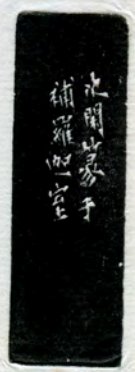 次閒篆于
補羅迦室